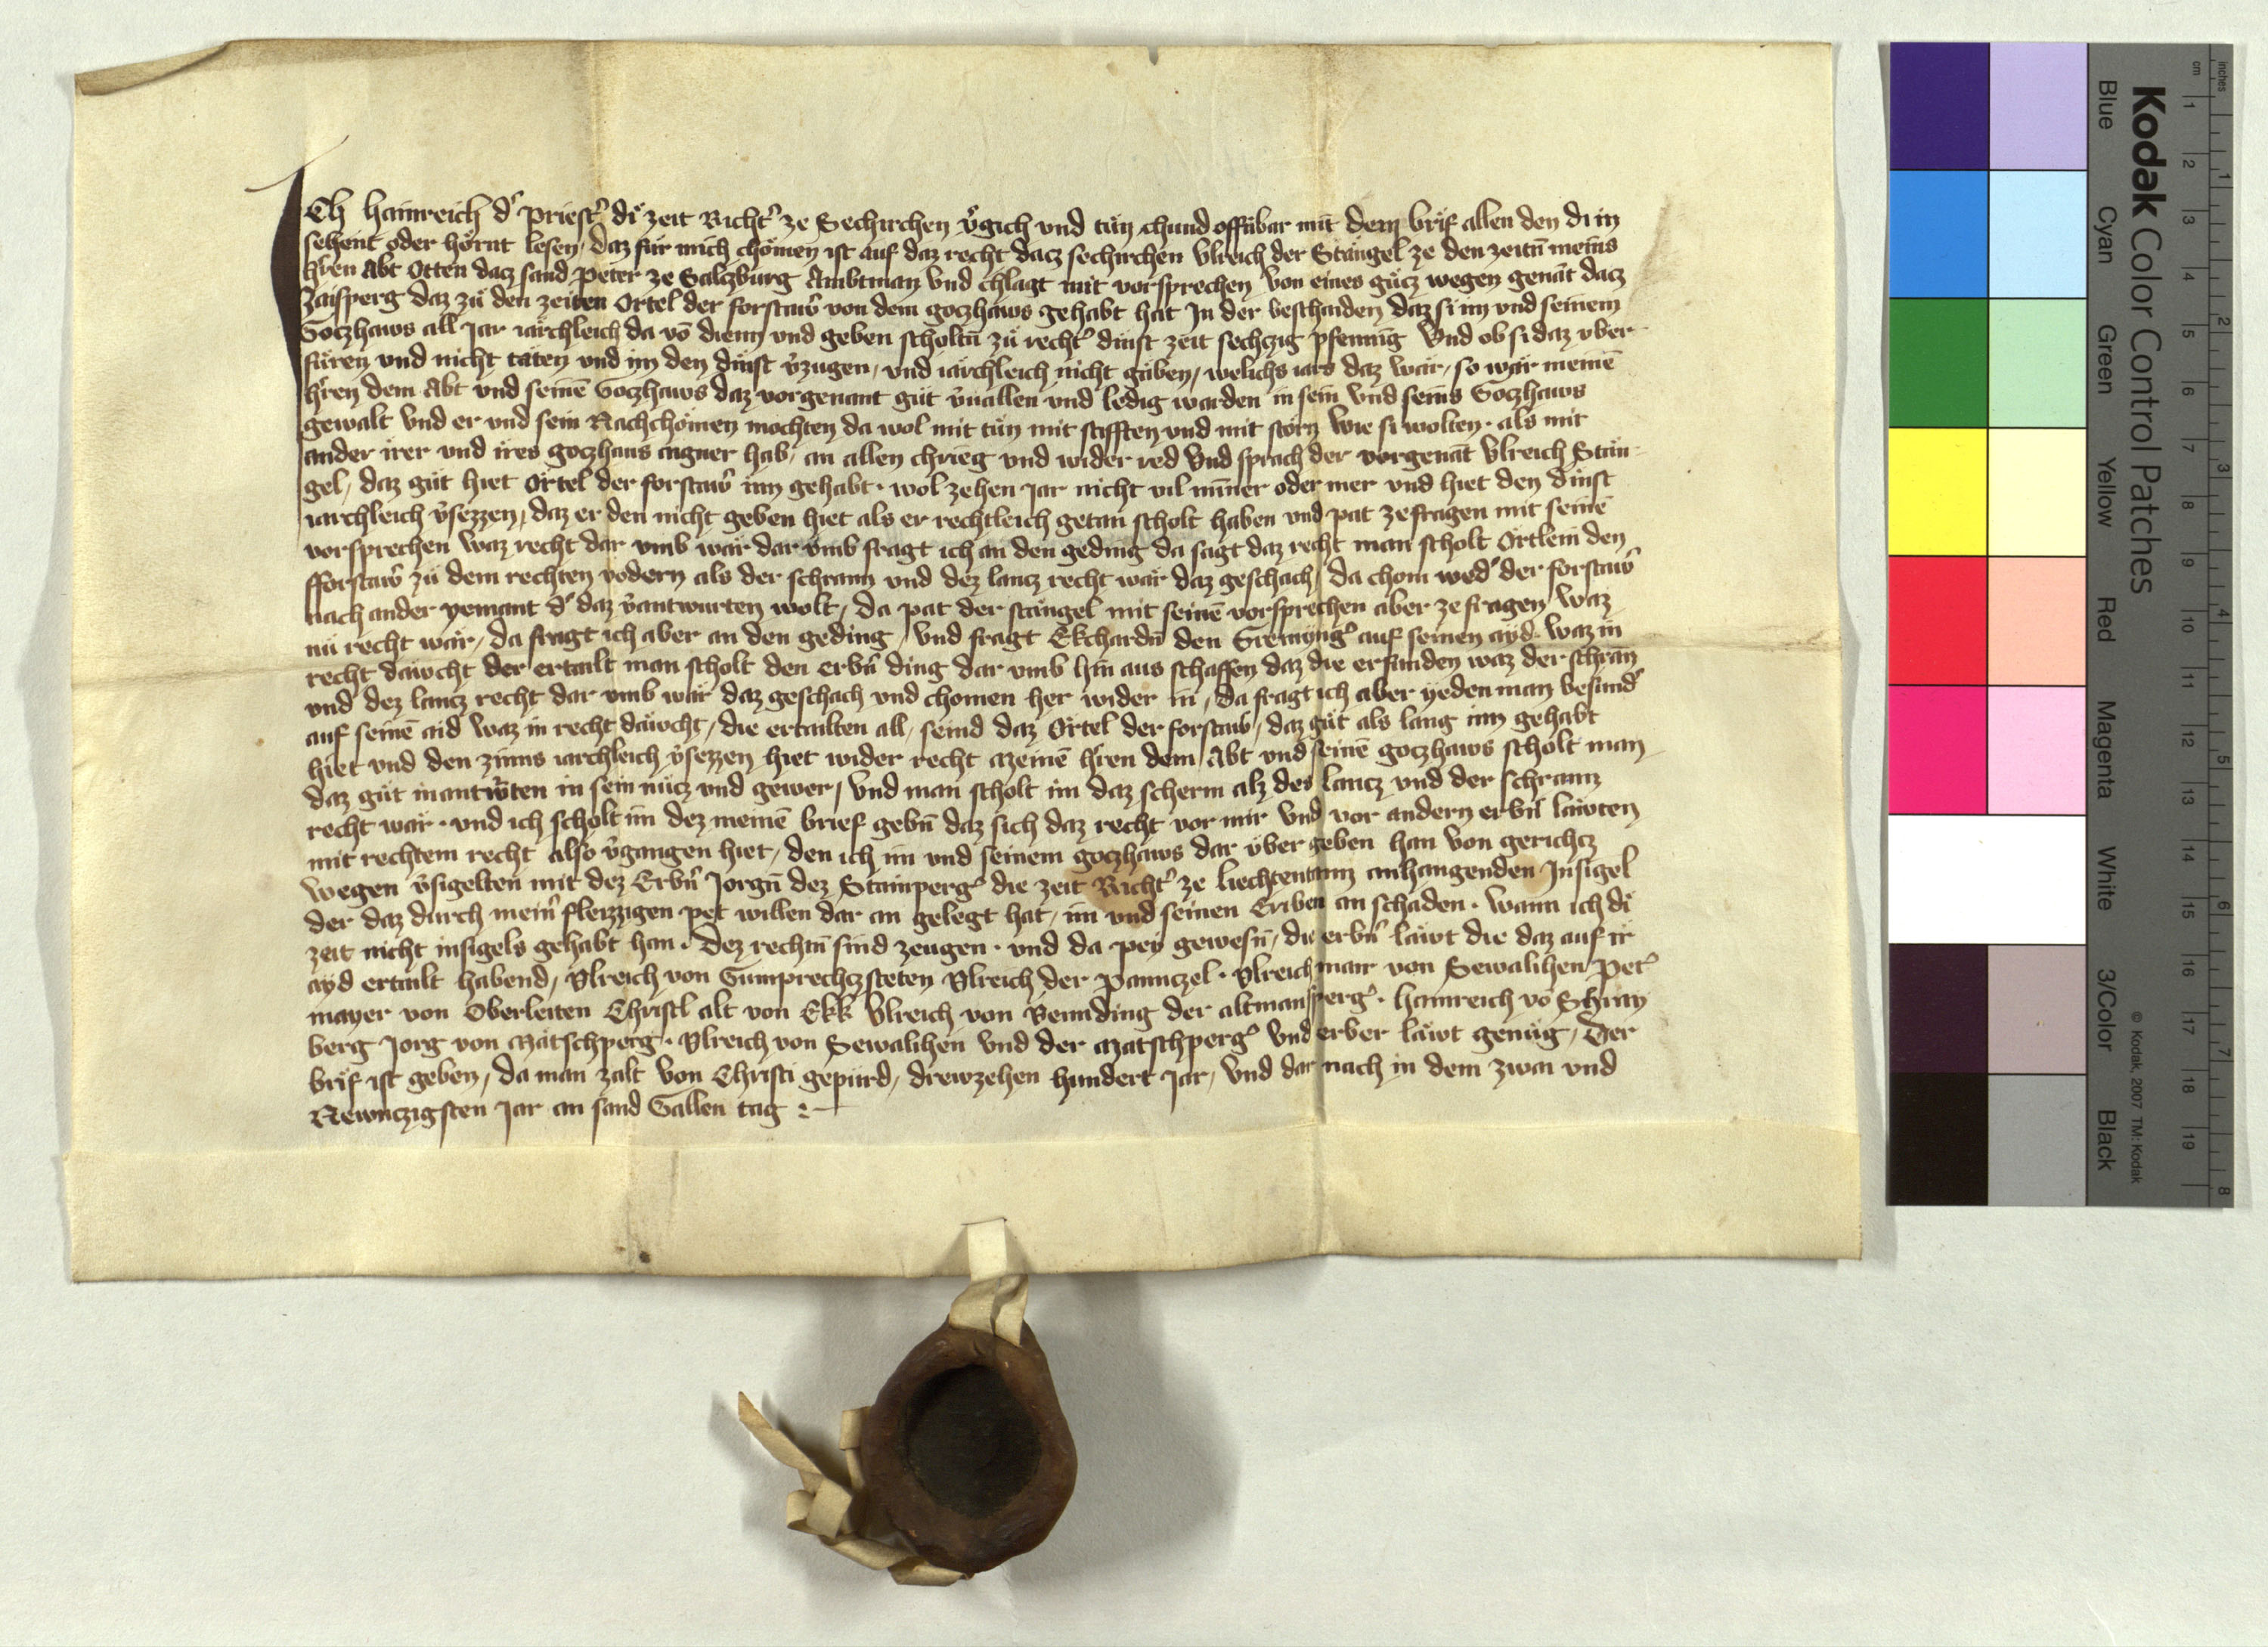 ICh Hainreich dˀ priestˀ di zeit Richtˀ ze Sechirchen vˀgich vnd tůn chund offnbar mit dem brif allen den di in
sehent oder hörnt lesen / daz für mich chömen ist auf daz recht dacz sechirchen Vlreich der Stängel ze den zeitn̄ meins
hˀren Abt Otten dacz sand Peter ze Salczburg Ambtman vnd chlagt mit vorsprechen von eines gůcz wegen genāt dacz
Zaisperg daz zů den zeiten Ortel der forstawˀ von dem goczhaws gehabt hat In der beschaiden daz si im vnd seinem
Goczhaws all Jar iärchleich da vō dienn vnd geben scholtn̄ zů rechtˀ dinst zeit sechczig pfennig Vnd ob si daz vber
füren vnd nicht täten vnd im den dinst vˀzugen / vnd iärchleich nicht gäben / welichs iars daz wär / so wär meinē
hˀren dem Abt vnd seinē Goczhaws daz vorgenant gůt vˀuallen vnd ledig warden in sein vnd seins Goczhaws
gewalt vnd er vnd sein Nachchömen mochten da wol mit tůn mit stifften vnd mit störn wie si wolten · als mit
ander irer vnd ires goczhaus aigner hab / an allen chrieg vnd wider red Vnd sprach der vorgenāt Vlreich Stän
gel / daz gůt hiet Örtel der forstawˀ inn gehabt · wol zehen Jar nicht vil minner oder mer vnd hiet den dinst
iarchleich vˀsezzen / daz er den nicht geben hiet als er rechtleich getan scholt haben vnd pat ze fragen mit seinē
vorsprechen waz recht dar vmb wär dar vmb fragt ich an den geding da sagt daz recht man scholt Ortlein den
fforstawˀ zů dem rechten vodern als der schrann vnd dez lancz recht wär daz geschach / da chom wedˀ der forstawˀ
nach ander yemant dˀ daz vˀantwurten wolt / da pat der stängel mit seinē vorsprechen aber ze fragen waz
nů recht wär / da fragt ich aber an den geding / vnd fragt Ekchardn̄ den Gremingˀ auf seinen ayd waz in
recht däwcht der ertailt man scholt den erbn̄ ding dar vmb hin aus schaffen daz die erfunden waz der schran̄
vnd dez lancz recht dar vmb wär daz geschach vnd chomen her wider in / da fragt ich aber yeden man besundˀ
auf seinē aid waz in recht däwcht / die ertailten all / seind daz Örtel der forstawˀ / daz gůt als lang inn gehabt
hiet vnd den zinns iarchleich vˀsezzen hiet wider recht Meinē hˀren dem Abt vnd seinē goczhaws scholt man
daz gůt inantwˀten in sein nücz vnd gewer / vnd man scholt im daz scherm alz des lancz vnd der schrann
recht wär · vnd ich scholt im dez meinē brief gebn̄ daz sich daz recht vor mir vnd vor andern erbn̄ läwten
mit rechtem recht also vˀgangen hiet / den ich im vnd seinem goczhaws dar vber geben han von gerichcz
wegen vˀsigelten mit dez Erbn̄ Jorgn̄ dez Stainpergˀ die zeit Richtˀ ze Liechtentann anhangenden Insigel
der daz durch meinˀ fleizzigen pet willen dar an gelegt hat / im vnd seinen Eriben an schaden · wann ich di
zeit nicht insigels gehabt han · Dez rechtn̄ sind zeugen · vnd da pey gewesn̄ / di erbn̄ läwt die daz auf ir
ayd ertailt habend / Vlreich von Gumprechczsteten Vlreich der Panniczel · Vlreich mair von Sewalihen Petˀ
mayer von Oberleiten Christl alt von Ekk Vlreich von Venuding der altmanspergˀ · Hainreich vō Schray
berg Jorg von Mätschperg · Vlreich von Sewalihen vnd der Matschpergˀ vnd erber läwt genüg / Der
brif ist geben / da man zalt von Christi gepürd / drewzehen hundert Jar / vnd dar nach in dem zwai vnd
Newnczigsten Jar an sand Gallen tag :~
Kodak Color Control Patches
© Kodak, 2007 TM: Kodak
Blue Cyan Green Yellow Red Magenta White 3/Color Black
inches 1 2 3 4 5 6 7 8
cm 1 2 3 4 5 6 7 8 9 10 11 12 13 14 15 16 17 18 19